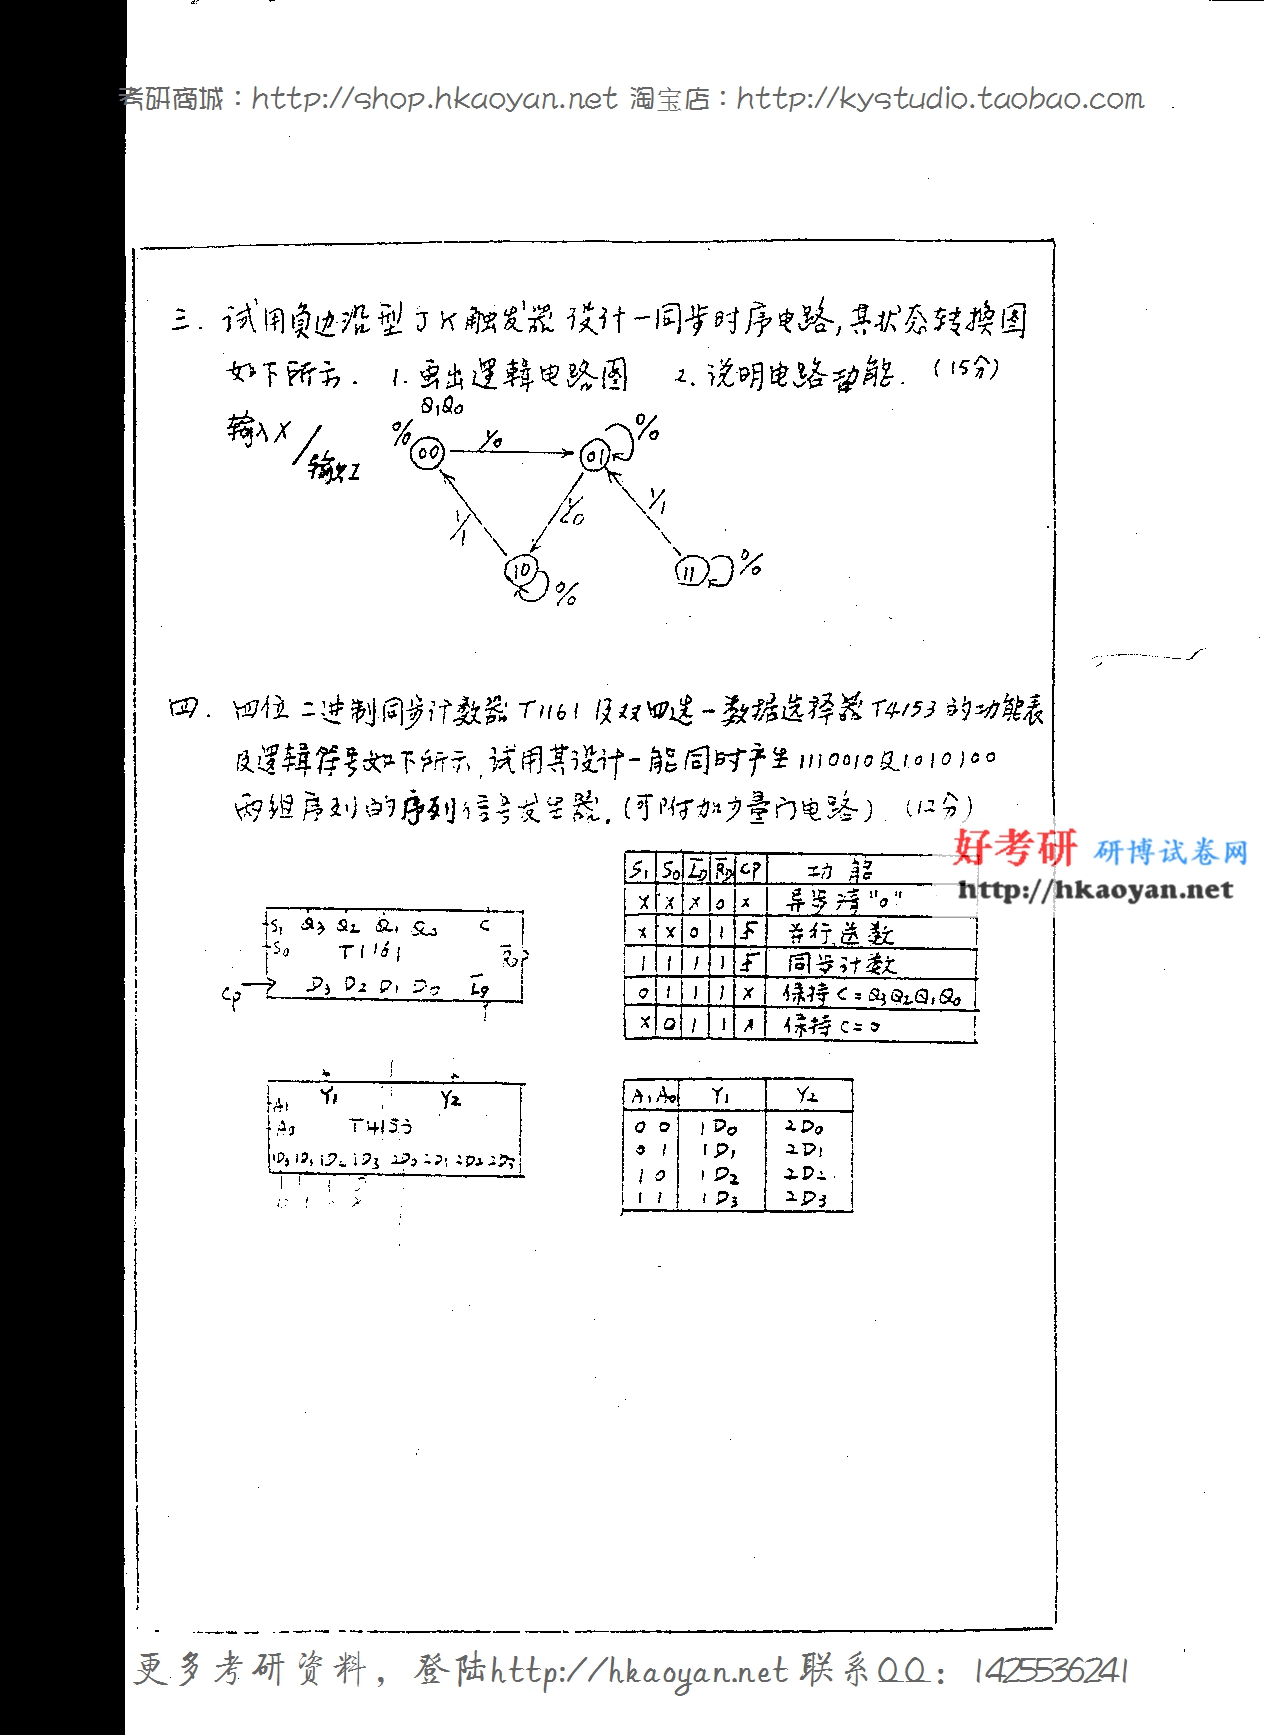 考研商城：http://shop.hkaoyan.net 淘宝店：http://kystudio.taobao.com
三. 试用负边沿型JK触发器设计一同步时序电路,其状态转换图
如下所示. 1. 画出逻辑电路图 2. 说明电路功能. (15分)
Q₁Q₀
输入X/输出Z
0/0 00 1/0 01 0/0
1/1 1/0 1/1
10 0/0 11 0/0
四. 四位二进制同步计数器T1161及双四选一数据选择器T4153的功能表
及逻辑符号如下所示,试用其设计一能同时产生1110010及1010100
两组序列的序列信号发生器.(可附加少量门电路) (12分)
好考研 研博试卷网
http://hkaoyan.net
S₁ S₀ L̅D̅ R̅D̅ CP 功能
× × × 0 × 异步清"0"
× × 0 1 并行送数
1 1 1 1 同步计数
0 1 1 1 × 保持 C=Q₃Q₂Q₁Q₀
× 0 1 1 × 保持 C=0
S₁ Q₃ Q₂ Q₁ Q₀ C
S₀ T1161 R̅D̅
CP D₃ D₂ D₁ D₀ L̅D̅
Y₁ Y₂
A₁
A₀ T4153
1D₀ 1D₁ 1D₂ 1D₃ 2D₀ 2D₁ 2D₂ 2D₃
A₁ A₀ Y₁ Y₂
0 0 1D₀ 2D₀
0 1 1D₁ 2D₁
1 0 1D₂ 2D₂
1 1 1D₃ 2D₃
更多考研资料，登陆http://hkaoyan.net 联系QQ：1425536241